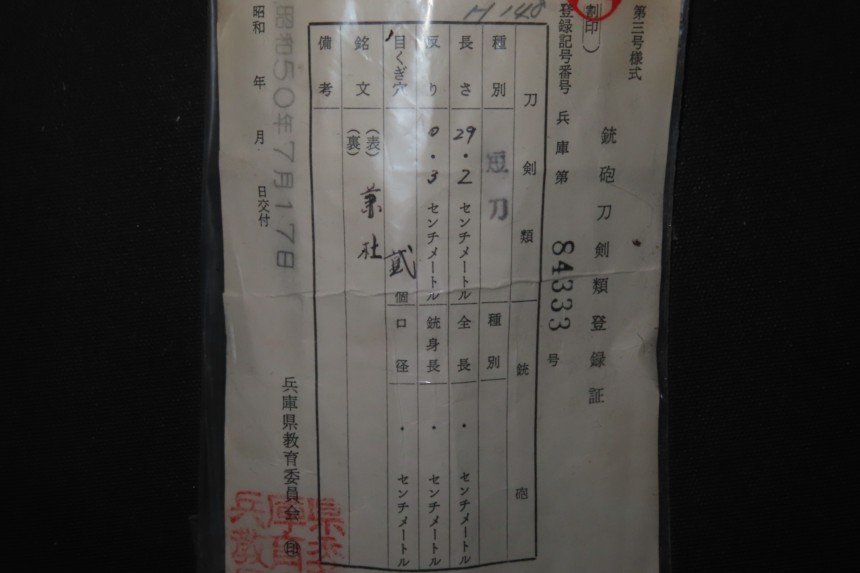 第三号様式
銃砲刀剣類登録証
割印
登録記号番号 兵庫第 84333 号
H 140
刀剣類 銃砲
種別 短刀 種別
長さ 29.2 センチメートル 全長 ・ センチメートル
反り 0.3 センチメートル 銃身長 ・ センチメートル
目くぎ穴 貳 個 口径 ・ センチメートル
銘文 (表)
(裏)
備考
昭和50年7月17日
昭和 年 月 日交付
兵庫県教育委員会 印